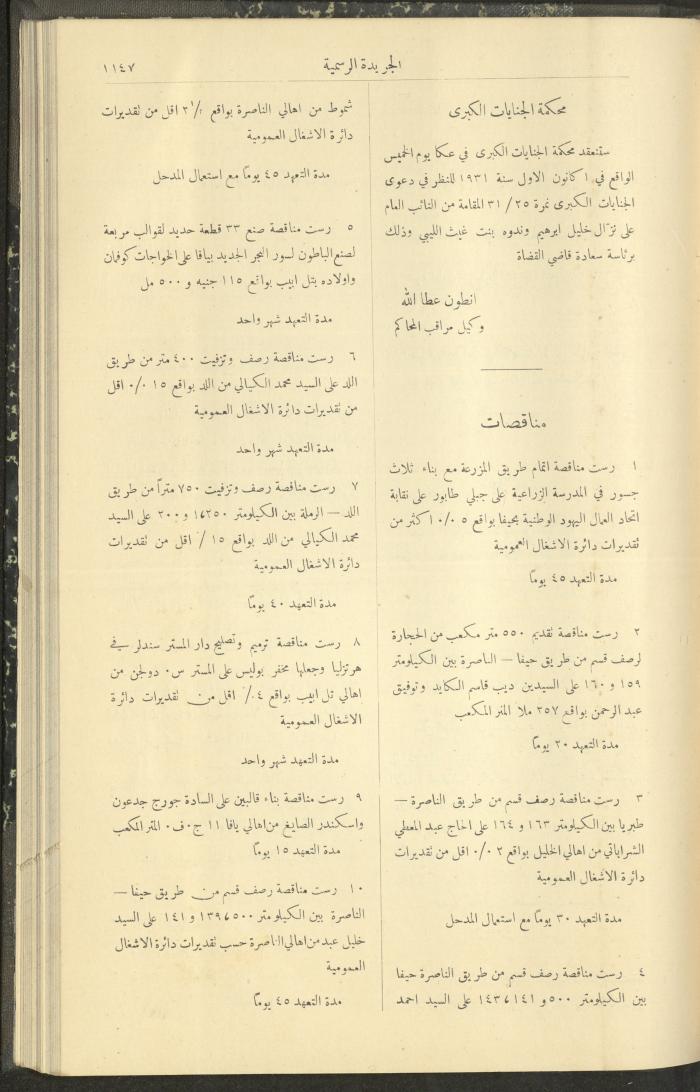 الجريدة الرسمية
١١٤٧
محكمة الجنايات الكبرى
ستنعقد محكمة الجنايات الكبرى في عكا يوم الخميس
الواقع في ١ كانون الاول سنة ١٩٣١ للنظر في دعوى
الجنايات الكبرى نمرة ٢٥ / ٣١ المقامة من النائب العام
على نزال خليل ابرهيم وندوه بنت غيث الليبي وذلك
برئاسة سعادة قاضي القضاة
انطون عطا الله
وكيل مراقب المحاكم
مناقصات
١ رست مناقصة اتمام طريق المزرعة مع بناء ثلاث
جسور في المدرسة الزراعية على جبلي طابور على نقابة
اتحاد العمال اليهود الوطنية بحيفا بواقع ٥ ٠/٠ اكثر من
تقديرات دائرة الاشغال العمومية
مدة التعهد ٤٥ يوماً
٢ رست مناقصة تقديم ٥٥٠ متر مكعب من الحجارة
لرصف قسم من طريق حيفا — الناصرة بين الكيلومتر
١٥٩ و ١٦٠ على السيدين ديب قاسم العكايد وتوفيق
عبد الرحمن بواقع ٢٥٧ ملا المتر المكعب
مدة التعهد ٢٠ يوماً
٣ رست مناقصة رصف قسم من طريق الناصرة —
طبريا بين الكيلومتر ١٦٣ و ١٦٤ على الحاج عبد المعطي
الشراباتي من اهالي الخليل بواقع ٢ ٠/٠ اقل من تقديرات
دائرة الاشغال العمومية
مدة التعهد ٣٠ يوماً مع استعمال المدحل
٤ رست مناقصة رصف قسم من طريق الناصرة حيفا
بين الكيلومتر ٥٠٠ و ١٤١ ١٤٣٦ على السيد احمد
شموط من اهالي الناصرة بواقع ٣١/٢ اقل من تقديرات
دائرة الاشغال العمومية
مدة التعهد ٤٥ يوماً مع استعمال المدحل
٥ رست مناقصة صنع ٣٣ قطعة حديد لقوالب مربعة
لصنع الباطون لسور البحر الجديد بيافا على الخواجات كوفمان
واولاده بتل ابيب بواقع ١١٥ جنيه و ٥٠٠ مل
مدة التعهد شهر واحد
٦ رست مناقصة رصف وتزفيت ٤٠٠ متر من طريق
اللد على السيد محمد الكيالي من اللد بواقع ١٥ ٠/٠ اقل
من تقديرات دائرة الاشغال العمومية
مدة التعهد شهر واحد
٧ رست مناقصة رصف وتزفيت ٧٥٠ متراً من طريق
اللد — الرملة بين الكيلومتر ١٦٢٥٠ و ٢٠٠ على السيد
محمد الكيالي من اللد بواقع ١٥ ٪ اقل من تقديرات
دائرة الاشغال العمومية
مدة التعهد ٤٠ يوماً
٨ رست مناقصة ترميم وتصليح دار المستر سندلر في
هرتزليا وجعلها مخفر بوليس على المستر س٠ دولجن من
اهالي تل ابيب بواقع ٤٪ اقل من تقديرات دائرة
الاشغال العمومية
مدة التعهد شهر واحد
٩ رست مناقصة بناء قالبين على السادة جورج جدعون
واسكندر الصايغ من اهالي يافا ١١ ج٠ف٠ المتر المكعب
مدة التعهد ١٥ يوماً
١٠ رست مناقصة رصف قسم من طريق حيفا —
الناصرة بين الكيلومتر ١٣٩٦٥٠٠ و ١٤١ على السيد
خليل عبد من اهالي الناصرة حسب تقديرات دائرة الاشغال
العمومية
مدة التعهد ٤٥ يوماً